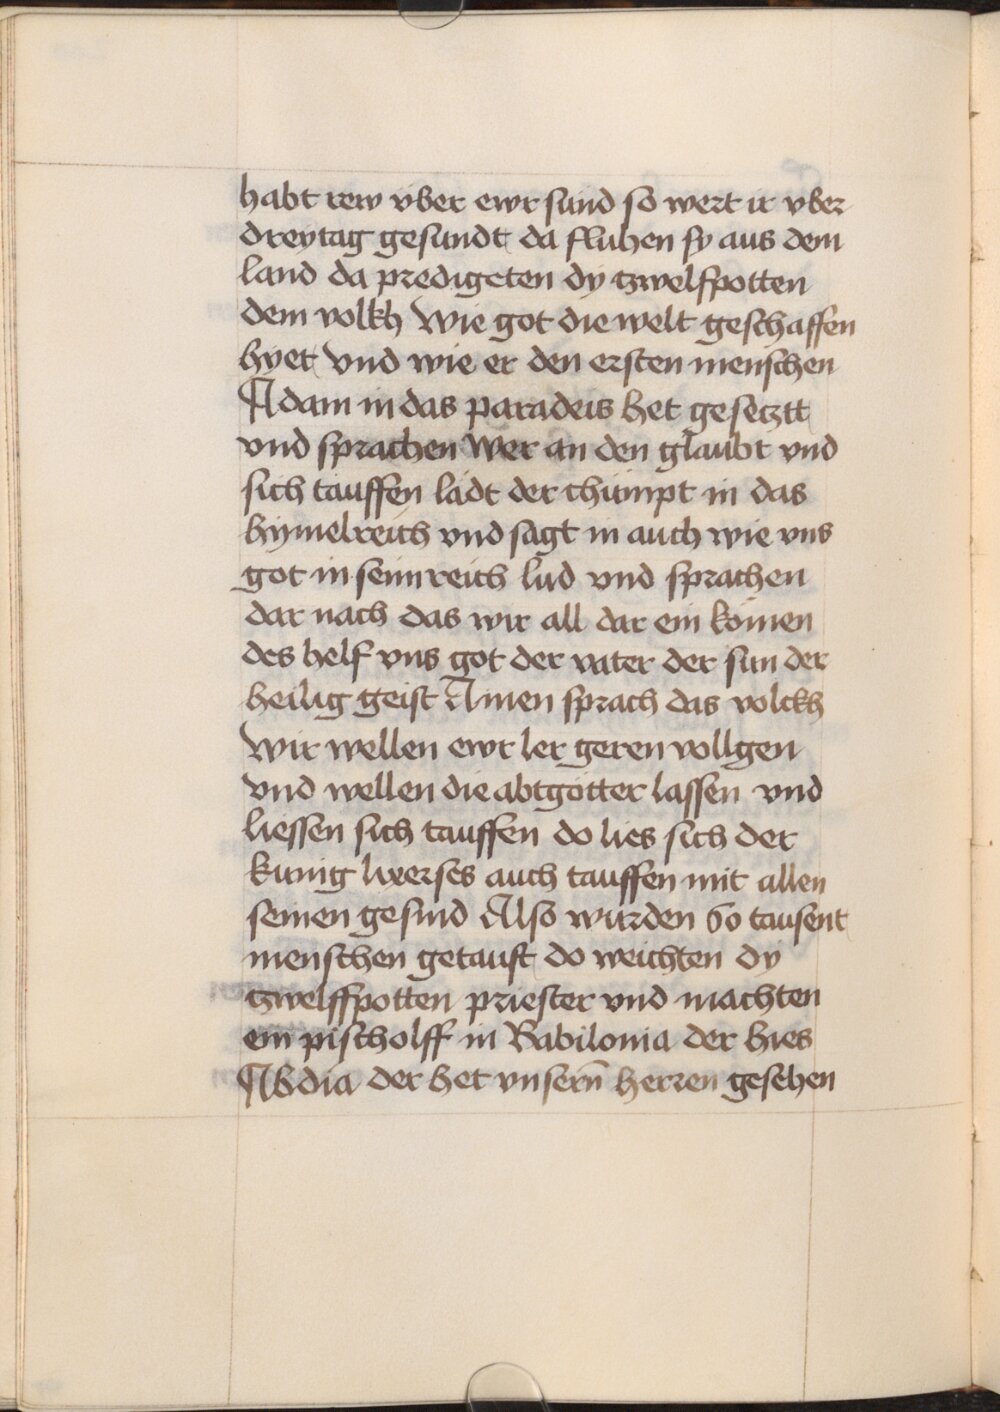 habt rew vber ewr sünd so wert ir vber
dreytag gesundt da fluhen sy aus dem
land da predigeten dy tzwelfpotten
dem volkh Wie got die welt geschaffen
hyet Vnd wie er den ersten menschen
Adam in das paradeis het gesetztt
vnd sprachen Wer an den glaubt vnd
sich tauffen lädt der chümpt in das
hymelreich vnd sagt in auch wie vns
got in seim reich lüd vnd sprachen
dar nach das wir all dar ein kömen
des helf vns got der vater der sun der
heilig geist Amen sprach das volckh
Wir wellen ewr ler geren vollgen
Vnd wellen die abtgötter lassen vnd
liessen sich tauffen do lies sich der
kunig lixerses auch tauffen mit allen
seinen gesind Also wurden 60 tausent
menschen getauft do weichten dy
tzwelffpotten priester vnd machten
ein pischolff in Babilonia der hies
Abdia der het vnsern̄ herren gesehen